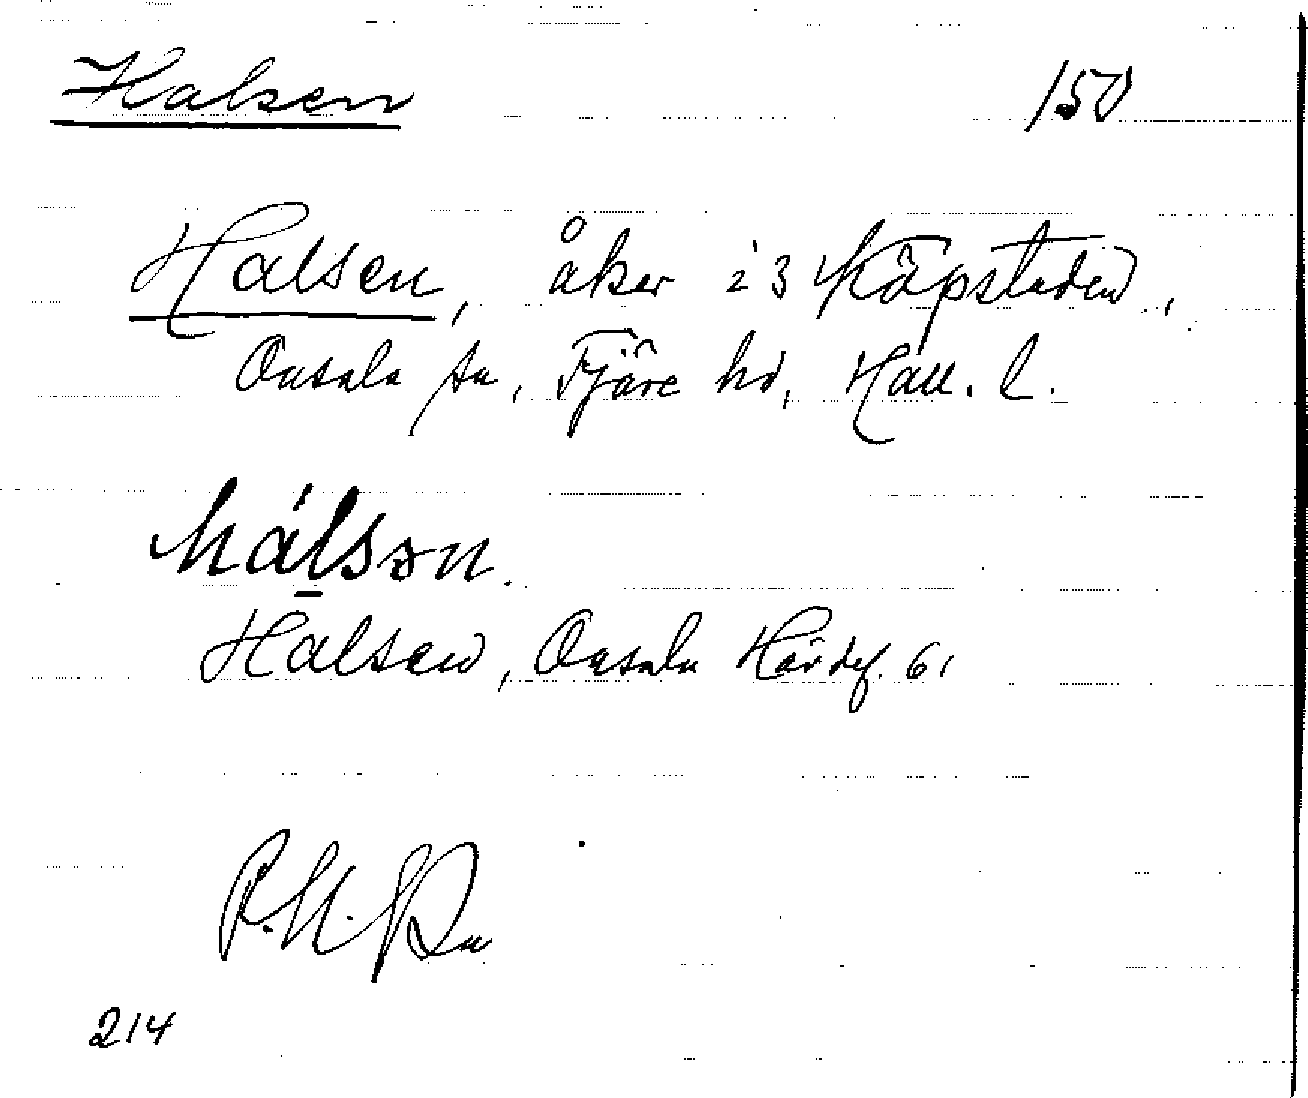 Halsen 150
Halsen, åker i 3 Köpstaden,
Onsala sn, Fjäre hd, Hall. l.
hálsən.
Halsen, Onsala Hävdef. 61
214